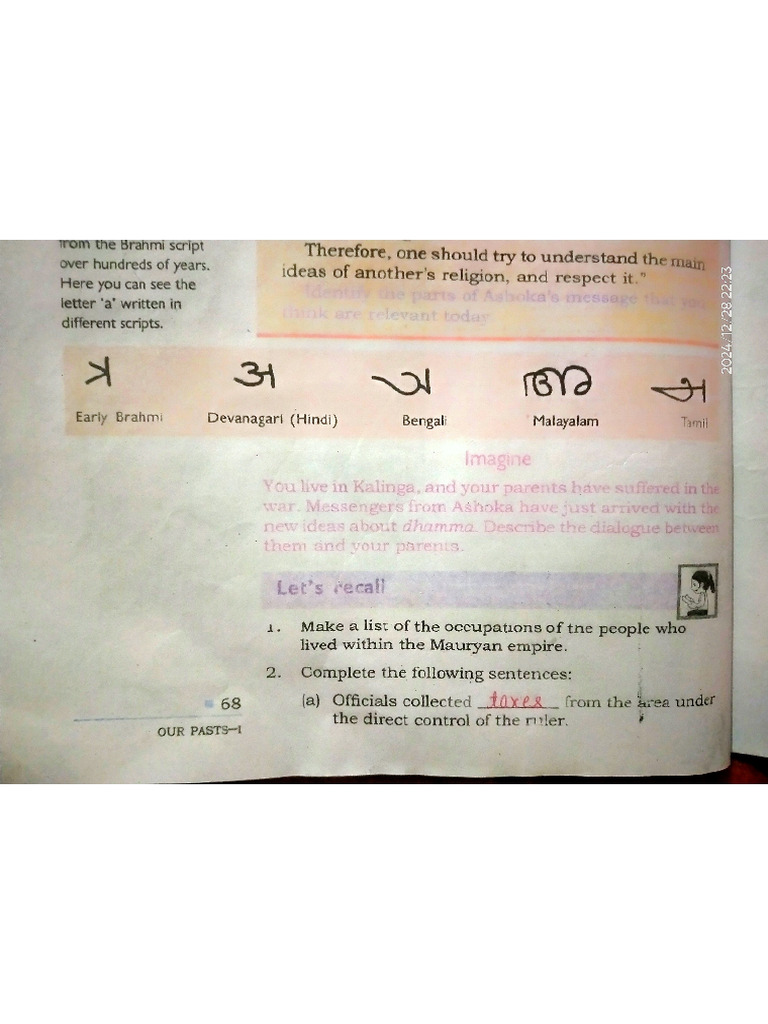 from the Brahmi script
over hundreds of years.
Here you can see the
letter 'a' written in
different scripts.
Therefore, one should try to understand the main
ideas of another's religion, and respect it."
Identify the parts of Ashoka's message that you
think are relevant today
2024.12/28 22:23
अ
অ
അ
Early Brahmi
Devanagari (Hindi)
Bengali
Malayalam
Tamil
Imagine
You live in Kalinga, and your parents have suffered in the
war. Messengers from Ashoka have just arrived with the
new ideas about dhamma. Describe the dialogue between
them and your parents.
Let's recall
1. Make a list of the occupations of the people who
lived within the Mauryan empire.
2. Complete the following sentences:
(a) Officials collected taxes from the area under
the direct control of the ruler.
68
OUR PASTS–I